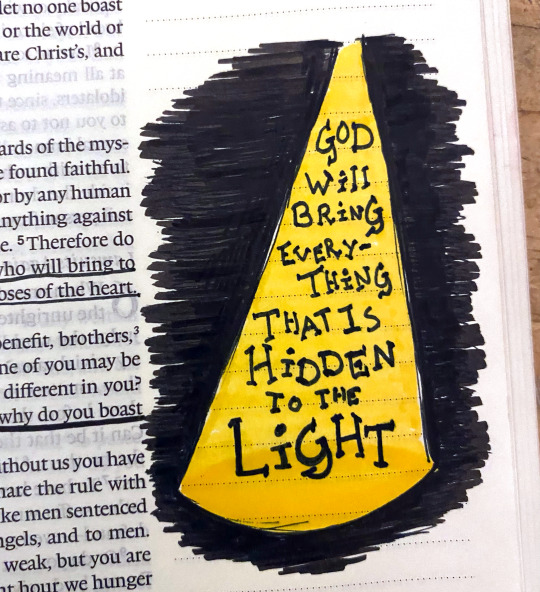 let no one boast
or the world or
are Christ's, and
ards of the mys-
e found faithful.
or by any human
anything against
e. ⁵Therefore do
who will bring to
oses of the heart.
benefit, brothers,³
ne of you may be
different in you?
why do you boast
ithout us you have
hare the rule with
ke men sentenced
ngels, and to men.
weak, but you are
nt hour we hunger
GOD
WiLL
BRiNG
EVERY-
THiNG
THAT IS
HiDDEN
TO THE
LiGHT